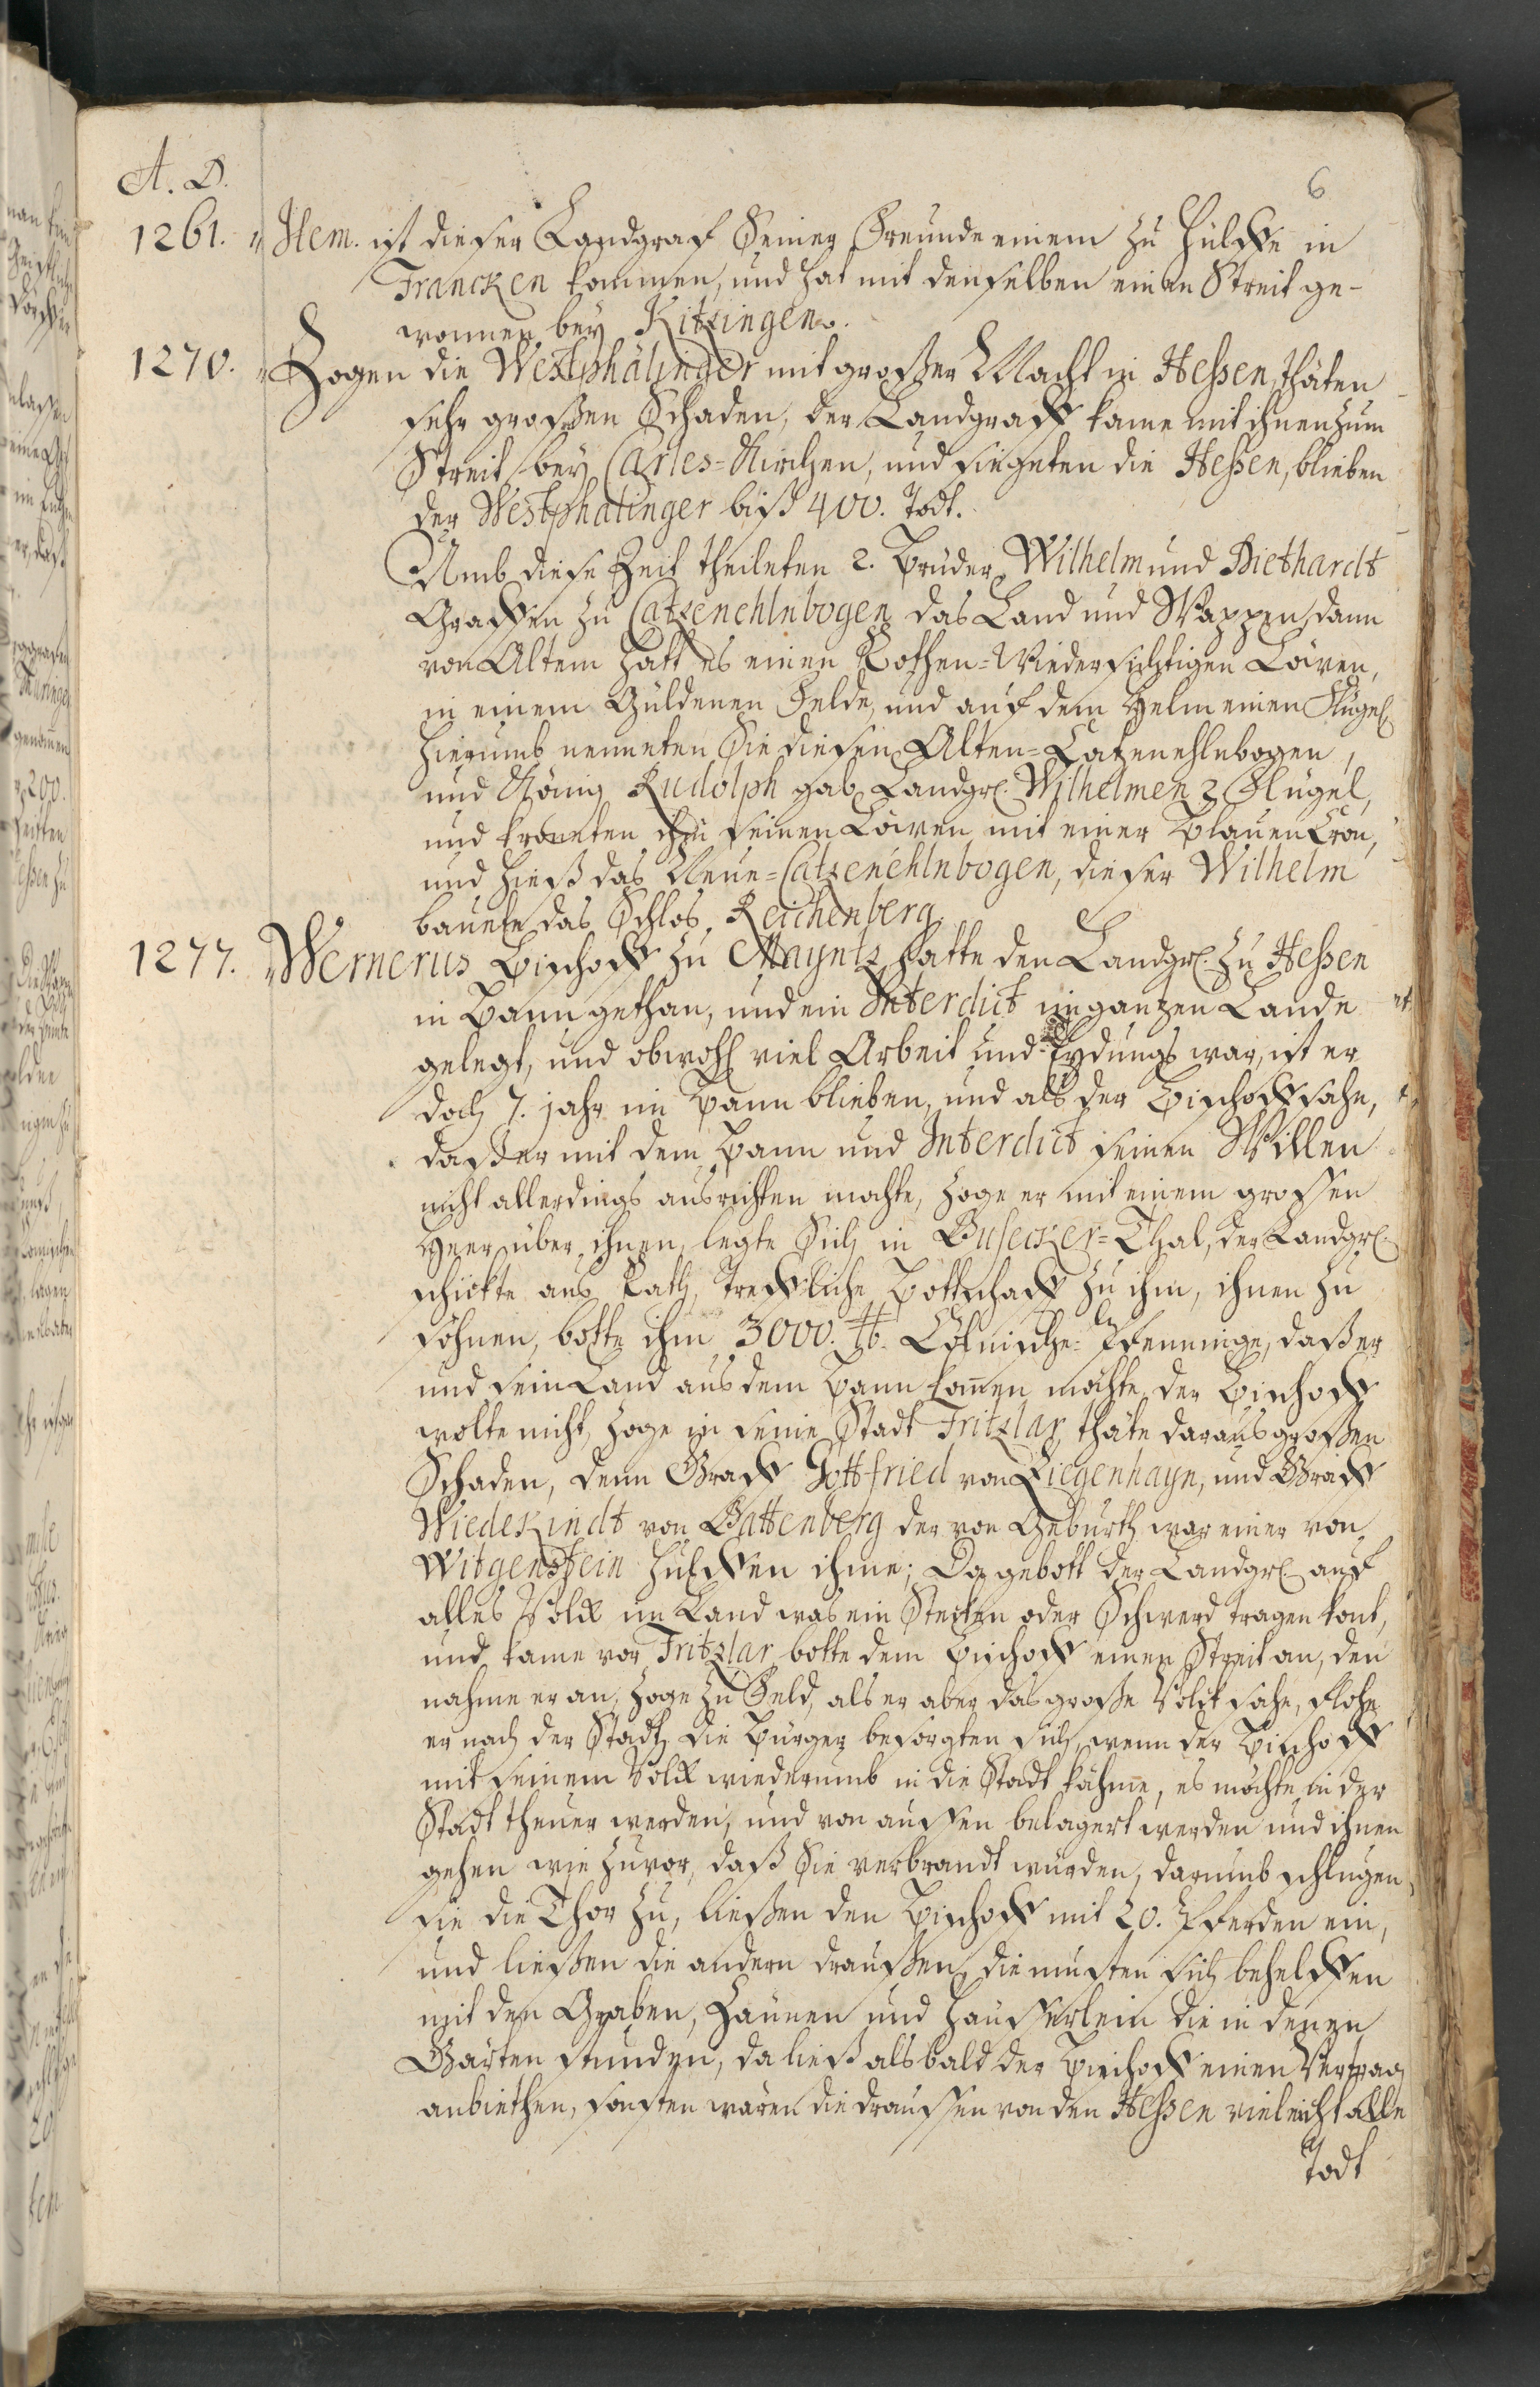 A. D.
6
1261. Item. ist dieser Landgraf Seiner Freunde einem zu Hülffe in
Francken kommen, und hat mit denselben einen Streit ge-
wonnen bey Kitzingen.
1270. Zogen die Westphälinger mit großer Macht in Heßen, thäten
sehr großen Schaden, der Landgraff kame mit ihnen zum
Streit bey Carles-Kirchen, und siegeten die Heßen, blieben
der Westphalinger biß 400. Todt.
Umb diese Zeit theileten 2. Brüder Wilhelm und Diethardt
Graffen zu Catzenehlnbogen das Land und Wappen, dann
von Altem hatt es einen Rothen-Niedersichtigen Löwen,
in einem Güldenen Felde, und auf dem Helm einen Flügel
hierumb nenneten Sie diesen Alten-Catzenehlnbogen,
und König Rudolph gab Landgr. Wilhelmen 2 Flügel,
und kroneten ihm seinen Löwen mit einer Blauen Cron,
und hieß das Neue-Catzenehlnbogen, dieser Wilhelm
bauete das Schlos Reichenberg.
1277. Wernerus Bischoff zu Mayntz hatte den Landgr. zu Heßen
in Bann gethan, und ein Interdict im gantzen Lande
gelegt, und obwohl viel Arbeit und war, ist er
doch 7. jahr im Bann blieben, und als der Bischoff sahe,
daß er mit dem Bann und Interdict seinen Willen
nicht allerdings ausrichten mochte, zoge er mit einem grossen
Heer über ihnen, legte Sich in Busecker-Thal, der Landgr.
schickte aus Rath, Treffliche Bottschafft zu ihm, ihnen zu
söhnen, botte ihm 3000. ℔. Cölnische Pfenninge, daß er
und sein Land aus dem Bann kommen möchte, der Bischoff
wolte nicht, zoge in seine Stadt Fritzlar, thäte daraus großen
Schaden, denn Graff Gottfried von Ziegenhayn, und Graff
Wiedekindt von Battenberg der von Geburth war einer von
Witgenstein hülffen ihme; Da gebott der Landgr. auf
alles Volck im Land was ein Stecken oder Schwerd tragen kont,
und kame vor Fritzlar botte dem Bischoff einen Streit an, den
nahme er an, zoge zu Feld, als er aber das große Volck sahe, flohe
er nach der Stadt, die Bürger besorgten sich, wenn der Bischoff
mit seinem Volck wiederumb in die Stadt kähme, es möchte in der
Stadt theuer werden, und von aussen belagert werden und ihnen
gehen wie zuvor, daß Sie verbrandt würden, darumb schlugen
sie die Thor zu, ließen den Bischoff mit 20. Pferden ein,
und ließen die andern draußen, die musten sich behelffen
mit den Graben, Zäunen und Häusserlein die in denen
Gärten stunden, da ließ alsbald der Bischoff einen Vertrag
anbiethen, sonsten wären die draussen von den Heßen vieleicht alle
Todt